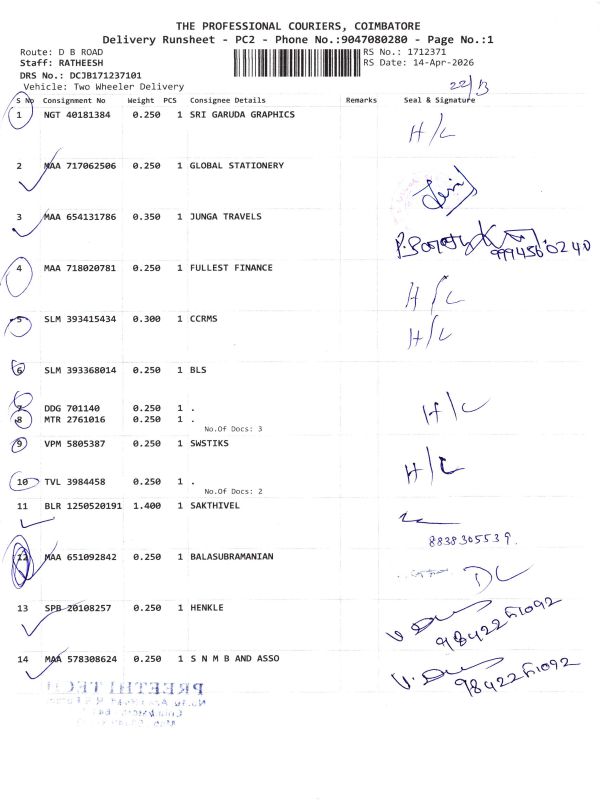 THE PROFESSIONAL COURIERS, COIMBATORE
Delivery Runsheet - PC2 - Phone No.:9047080280 - Page No.:1
Route: D B ROAD RS No.: 1712371
Staff: RATHEESH RS Date: 14-Apr-2026
DRS No.: DCJB171237101
Vehicle: Two Wheeler Delivery
22/13
S No Consignment No Weight PCS Consignee Details Remarks Seal & Signature
1 NGT 40181384 0.250 1 SRI GARUDA GRAPHICS H/C
2 MAA 717062506 0.250 1 GLOBAL STATIONERY
3 MAA 654131786 0.350 1 JUNGA TRAVELS
4 MAA 718020781 0.250 1 FULLEST FINANCE H/C
5 SLM 393415434 0.300 1 CCRMS H/C
6 SLM 393368014 0.250 1 BLS
7 DDG 701140 0.250 1 . H/C
8 MTR 2761016 0.250 1 .
No.Of Docs: 3
9 VPM 5805387 0.250 1 SWSTIKS H/C
10 TVL 3984458 0.250 1 .
No.Of Docs: 2
11 BLR 1250520191 1.400 1 SAKTHIVEL
8838305539.
12 MAA 651092842 0.250 1 BALASUBRAMANIAN DC
13 SPB 20108257 0.250 1 HENKLE
9842261092
14 MAA 578308624 0.250 1 S N M B AND ASSO
9842261092
PREETHI TECH